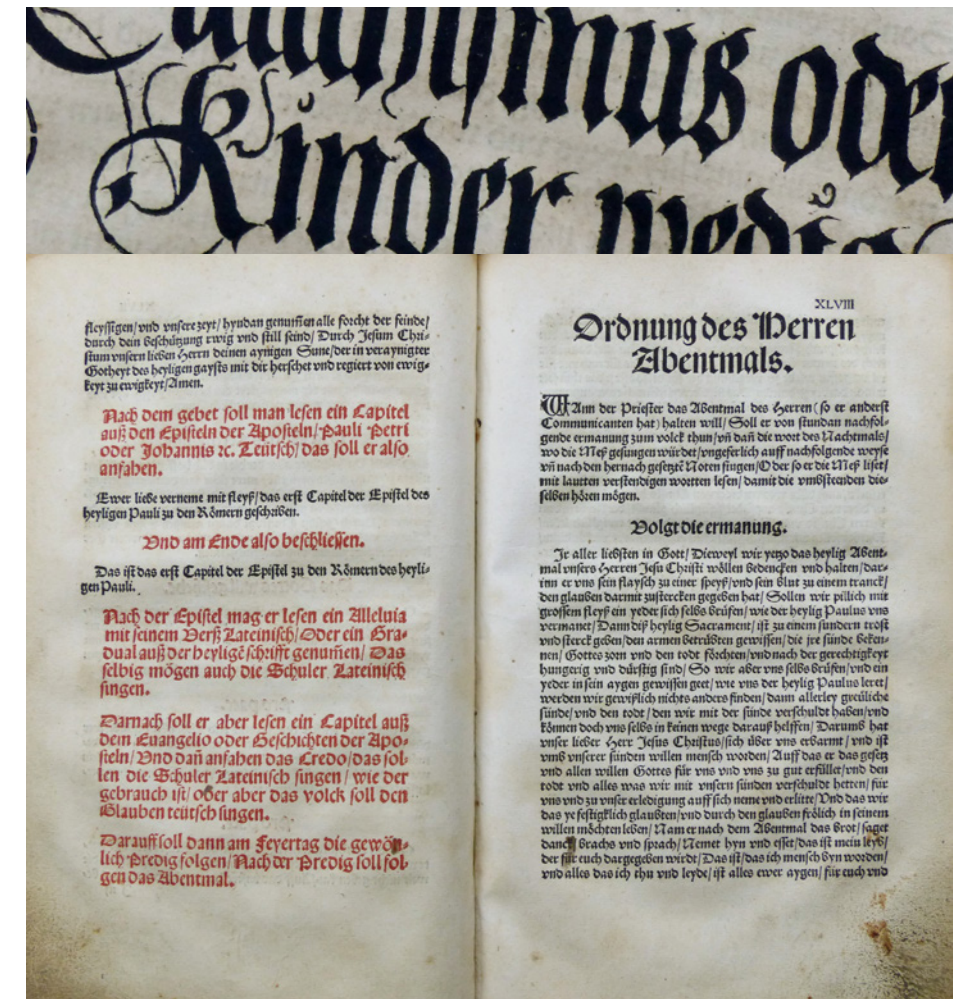 Catechismus oder
Kinder predig
fleyssigen/ vnd vnsere zeyt/ hyndan genum̄en alle forcht der feinde/
durch dein beschützung rwig vnd still seind/ Durch Jesum Chri-
stum vnsern lieben Herrn deinen aynigen Sune/ der in veraynigter
Gotheyt des heyligen gaysts mit dir herschet vnd regiert von ewig-
keyt zu ewigkeyt/ Amen.
Nach dem gebet soll man lesen ein Capitel
auß den Episteln der Aposteln/ Pauli Petri
oder Johannis ꝛc. Teütsch/ das soll er also
anfahen.
Ewer liebe verneme mit fleyß/ das erst Capitel der Epistel des
heyligen Pauli zu den Römern geschriben.
Vnd am Ende also beschliessen.
Das ist das erst Capitel der Epistel zu den Römern des heyli-
gen Pauli.
Nach der Epistel mag er lesen ein Alleluia
mit seinem Verß Lateinisch/ Oder ein Gra-
dual auß der heyligē schrifft genum̄en/ Das
selbig mögen auch die Schuler Lateinisch
singen.
Darnach soll er aber lesen ein Capitel auß
dem Euangelio oder Geschichten der Apo-
steln/ Vnd dan̄ anfahen das Credo/ das sol-
len die Schuler Lateinisch singen/ wie der
gebrauch ist/ oder aber das volck soll den
Glauben teütsch singen.
Darauff soll dann am Feyertag die gewön-
lich Predig folgen/ Nach der Predig soll fol-
gen das Abentmal.
XLVIII
Ordnung des Herren
Abentmals.
WAnn der Priester das Abentmal des Herren (so er anderst
Communicanten hat) halten will/ Soll er von stundan nachfol-
gende ermanung zum volck thun/ vn̄ dan̄ die wort des Nachtmals/
wo die Meß gesungen würdet/ vngeferlich auff nachfolgende weyse
vn̄ nach den hernach gesetztē Noten singen/ Oder so er die Meß liset/
mit lautten verstendigen wortten lesen/ damit die vmbsteenden die-
selben hören mögen.
Volgt die ermanung.
Jr aller liebsten in Gott/ Dieweyl wir yetzo das heylig Abent-
mal vnsers Herren Jesu Christi wöllen bedencken vnd halten/ dar-
inn er vns sein flaysch zu einer speyß/ vnd sein blut zu einem tranck/
den glauben darmit zustercken gegeben hat/ Sollen wir pillich mit
grossem fleyß ein yeder sich selbs brüfen/ wie der heylig Paulus vns
vermanet/ Dann diß heylig Sacrament/ ist zu einem sundern trost
vnd sterck geben/ den armen betrübten gewissen/ die jre sünde beken-
nen/ Gottes zorn vnd den todt förchten/ vnd nach der gerechtigkeyt
hungerig vnd dürstig sind/ So wir aber vns selbs brüfen/ vnd ein
yeder in sein aygen gewissen geet/ wie vns der heylig Paulus leret/
werden wir gewißlich nichts anders finden/ dann allerley greüliche
sünde/ vnd den todt/ den wir mit der sünde verschuldt haben/ vnd
können doch vns selbs in keinen wege darauß helffen/ Darumb hat
vnser lieber Herr Jesus Christus/ sich über vns erbarmt/ vnd ist
vmb vnserer sünden willen mensch worden/ Auff das er das gesetz
vnd allen willen Gottes für vns vnd vns zu gut erfüllet/ vnd den
todt vnd alles was wir mit vnsern sünden verschuldt hetten/ für
vns vnd zu vnser erledigung auff sich neme vnd erlitte/ Vnd das wir
das ye festigklich glaubten/ vnd durch den glauben frölich in seinem
willen möchten leben/ Nam er nach dem Abentmal das brot/ saget
danck/ brachs vnd sprach/ Nemet hyn vnd esset/ das ist mein leyb/
der für euch dargegeben wirdt/ Das ist/ das ich mensch byn worden/
vnd alles das ich thu vnd leyde/ ist alles ewer aygen/ für euch vnd